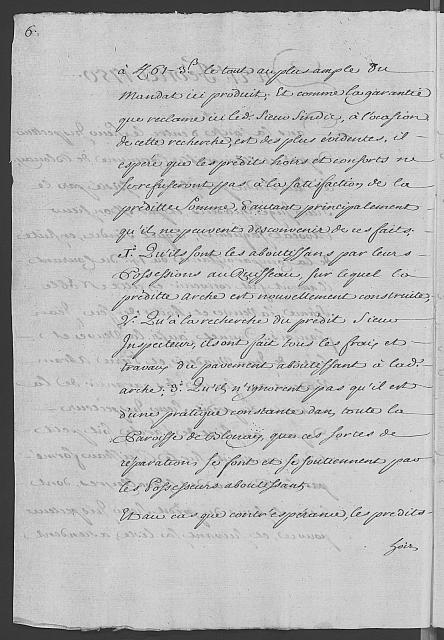 6.
à £61-3s le tout au plus ample du
Mandat ici produit; Et comme la garantie
que reclame ici led. Sieur Sindic, à l'ocasion
de cette recherche est des plus évidentes, il
espere que les prédits hoirs et consorts ne
se refuseront pas à la satisfaction de la
préditte somme, d'autant principalement
qu'il ne peuvent disconvenir de ces faits.
1°. Qu'ils sont les aboutissans par leurs
Possessions au Ruisseau, sur lequel la
préditte Arche est nouvellement construite,
2°. Qu'à la recherche du prédit Sieur
Inspecteur, ils ont fait tous les fraix et
travaux du pavement aboutissant à lad.
arche; 3°. Qu'ils n'ignorent pas qu'il est
d'une pratique constante dans toute la
Paroisse de Blonay, que ces sortes de
réparations se font et se soutiennent par
les Possesseurs aboutissants,
Et au cas que contr'espérance, les prédits
hoirs